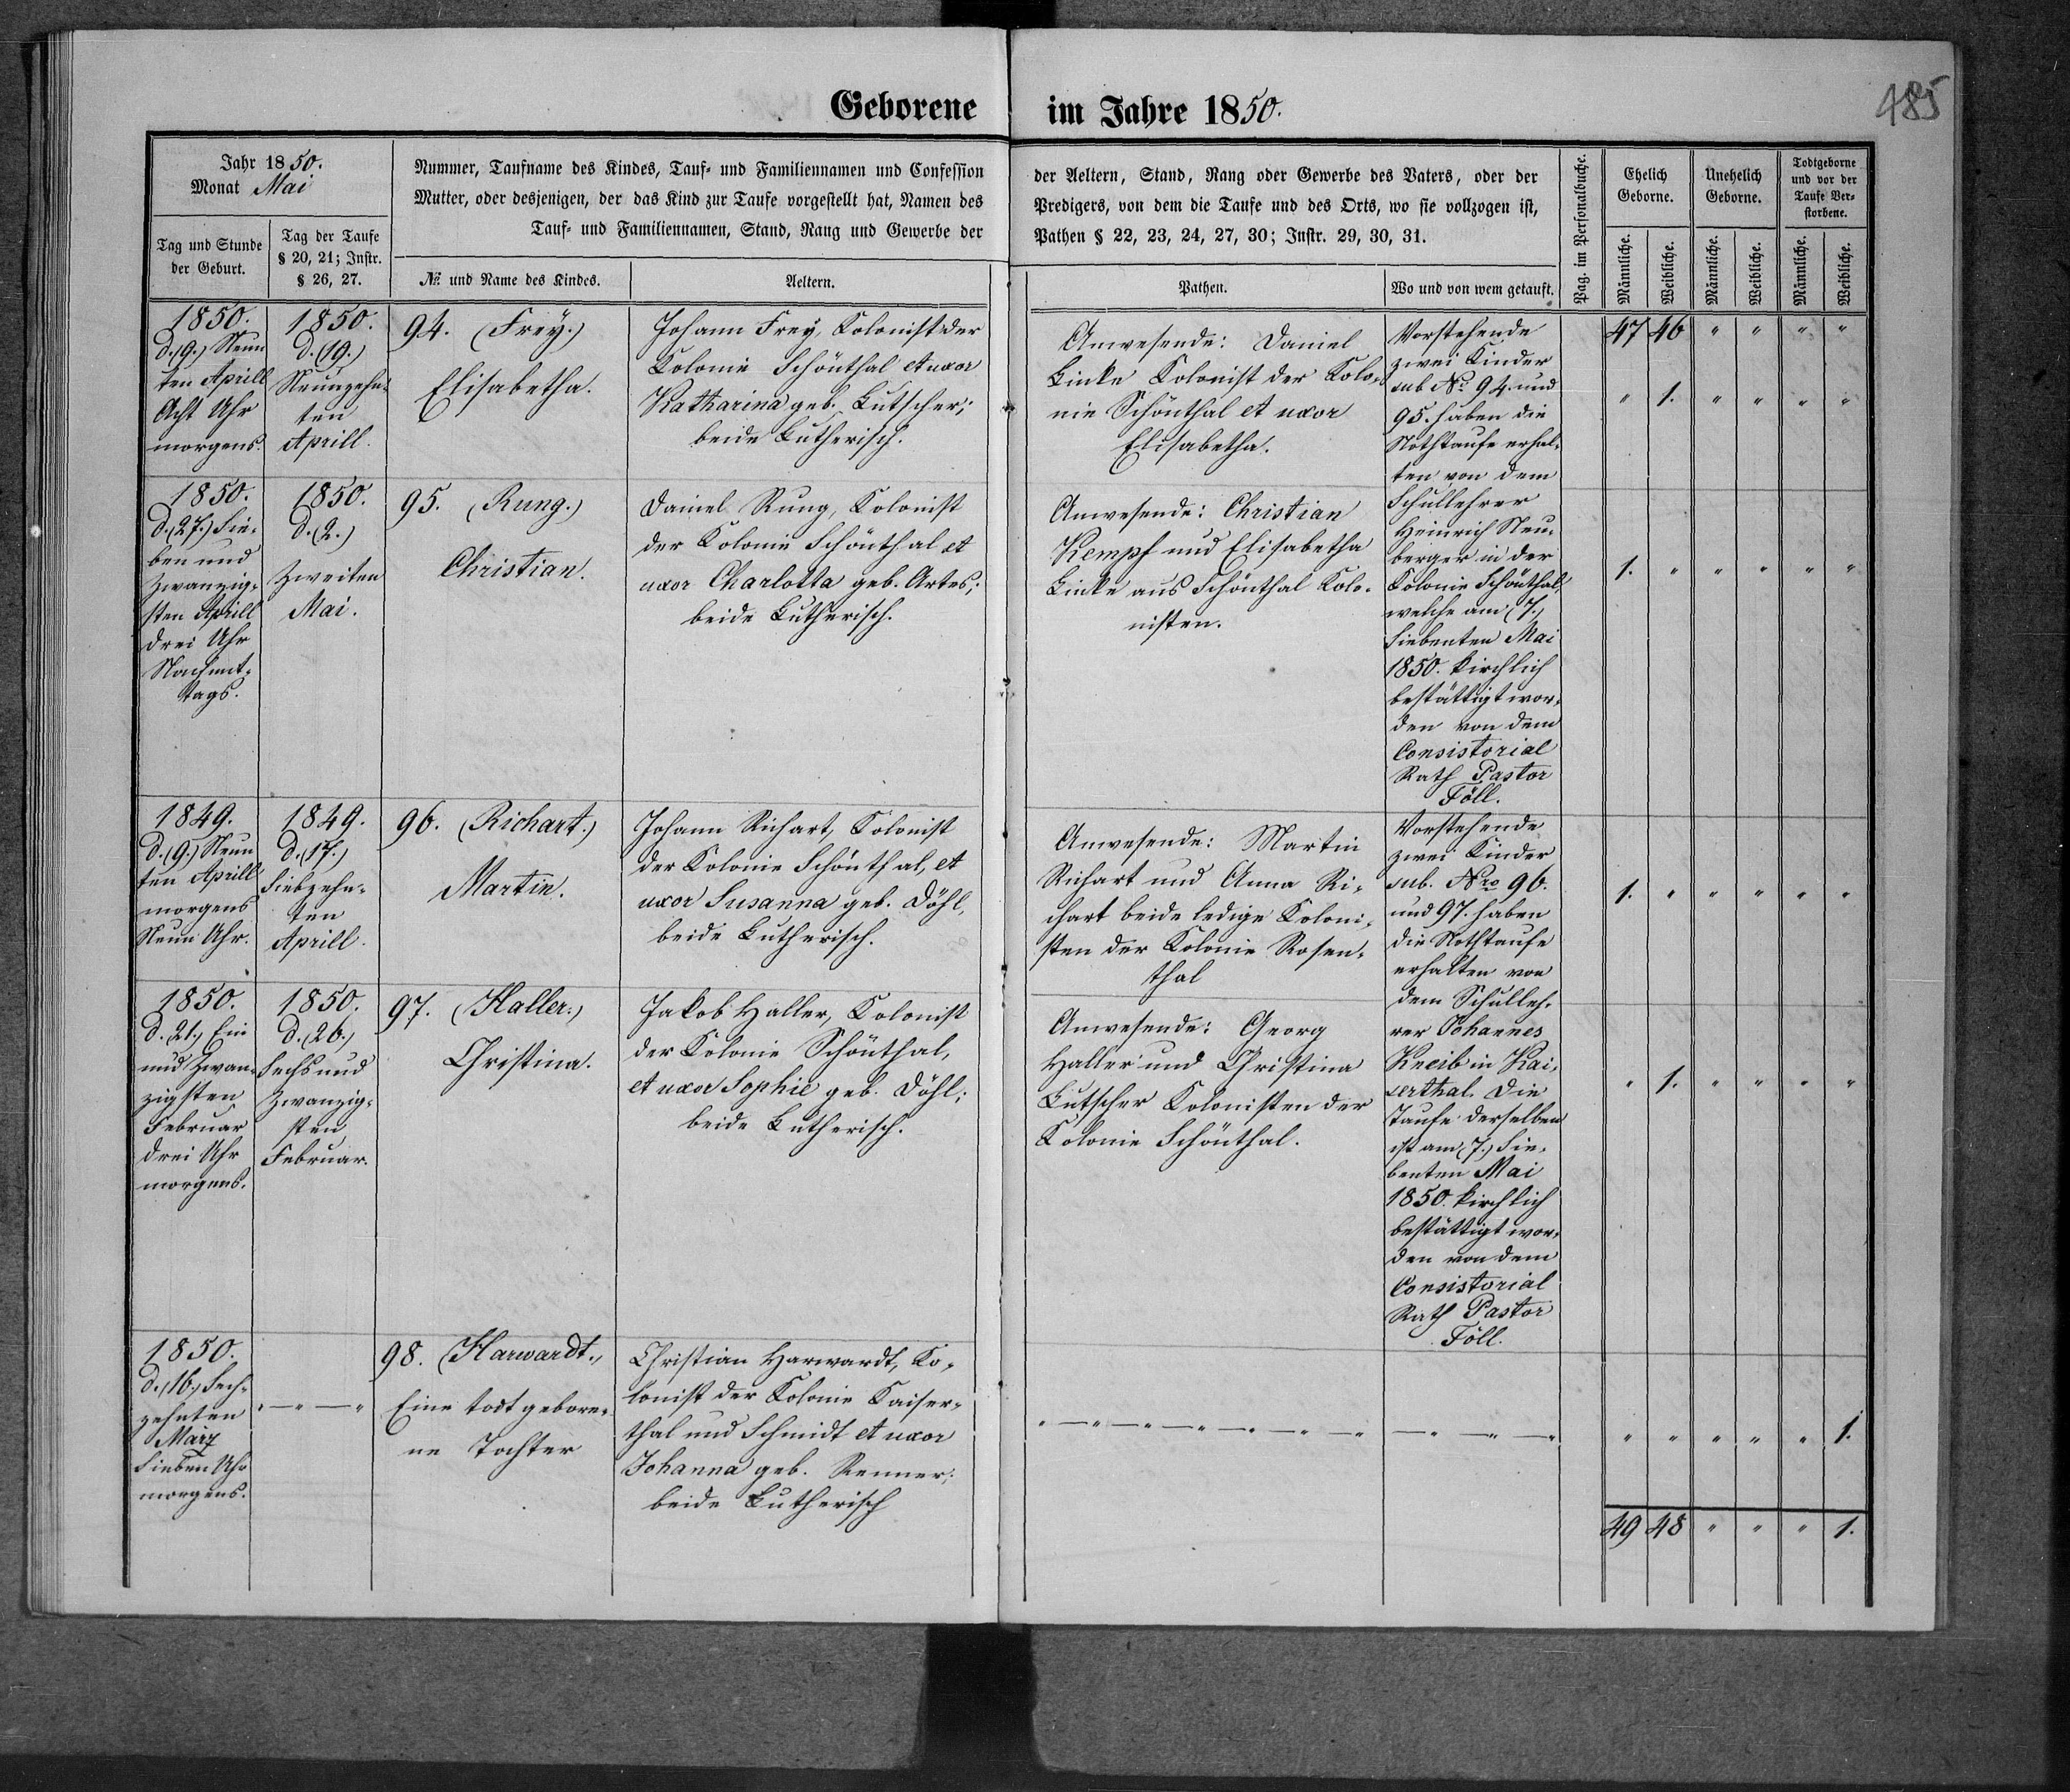 Geborene im Jahre 1850.
185
Jahr 1850.
Monat Mai
Tag und Stunde
der Geburt.
Tag der Taufe
§ 20, 21; Instr.
§ 26, 27.
Nummer, Taufname des Kindes, Tauf- und Familiennamen und Confession
Mutter, oder desjenigen, der das Kind zur Taufe vorgestellt hat, Namen des
Tauf- und Familiennamen, Stand, Rang und Gewerbe der
№ und Name des Kindes.
Aeltern.
der Aeltern, Stand, Rang oder Gewerbe des Vaters, oder der
Predigers, von dem die Taufe und des Orts, wo sie vollzogen ist,
Pathen § 22, 23, 24, 27, 30; Instr. 29, 30, 31.
Pathen.
Wo und von wem getauft.
Pag. im Personalbuche.
Ehelich
Geborne.
Unehelich
Geborne.
Todtgeborne
und vor der
Taufe Ver-
storbene.
Männliche.
Weibliche.
Männliche.
Weibliche.
Männliche.
Weibliche.
1850.
d. (9.) Neun
ten Aprill
Acht Uhr
morgens.
1850.
d. (19.)
Neunzehn-
ten
Aprill.
94. (Frey.)
Elisabetha.
Johann Frey, Kolonist der
Kolonie Schönthal et uxor
Katharina geb. Lutscher;
beide Lutherisch.
Anwesende: Daniel
Linke Kolonist der Kolo-
nie Schönthal et uxor
Elisabetha.
Vorstehende
zwei Kinder
sub № 94. und
95. haben die
Nothtaufe erhal-
ten von dem
Schullehrer
Heinrich Neu-
berger in der
Kolonie Schönthal,
welche am (7.)
Siebenten Mai
1850. kirchlich
bestättigt wor-
den von dem
Consistorial
Rath Pastor
Föll.
47 46 " " " "
" 1. " " " "
1850.
d. (27.) Sie-
ben und
zwanzig-
sten Aprill
drei Uhr
Nachmit-
tags.
1850.
d. (2.)
Zweiten
Mai.
95. (Rung.)
Christian.
Daniel Rung, Kolonist
der Kolonie Schönthal et
uxor Charlotta geb. Artes;
beide Lutherisch.
Anwesende: Christian
Kempf und Elisabetha
Linke aus Schönthal Kolo-
nisten.
1. " " " " "
1849.
d. (9.) Neun
ten Aprill
morgens
Neun Uhr.
1849.
d. (17.)
Siebzehn-
ten
Aprill.
96. (Richart.)
Martin.
Johann Richart, Kolonist
der Kolonie Schönthal, et
uxor Susanna geb. Döhl,
beide Lutherisch.
Anwesende: Martin
Richart und Anna Ri-
chart beide ledige Koloni-
sten der Kolonie Rosen-
thal
Vorstehende
zwei Kinder
sub. Nro 96.
und 97. haben
die Nothtaufe
erhalten von
dem Schulleh-
rer Johannes
Kneib in Kai-
serthal. Die
Taufe derselben
ist am (7.) Sie-
benten Mai
1850. kirchlich
bestättigt wor-
den von dem
Consistorial
Rath Pastor
Föll.
1. " " " " "
1850.
d. (21.) Ein
und zwan-
zigsten
Februar
drei Uhr
morgens.
1850.
d. (26.)
Sechs und
zwanzig-
sten
Februar.
97. (Haller.)
Christina.
Jakob Haller, Kolonist
der Kolonie Schönthal,
et uxor Sophie geb. Döhl;
beide Lutherisch.
Anwesende: Georg
Haller und Christina
Lutscher Kolonisten der
Kolonie Schönthal.
" 1. " " " "
1850.
d. (16.) Sech-
zehnten
Marz
Sieben Uhr
morgens.
" — " — "
98. (Harwardt.)
Eine todtgebore-
ne Tochter
Christian Harwardt, Ko-
lonist der Kolonie Kaiser-
thal und Schmidt et uxor
Johanna geb. Renner;
beide Lutherisch
" — " — " — " — " — " — " — " — "
" " " " " 1.
49 48 " " " 1.